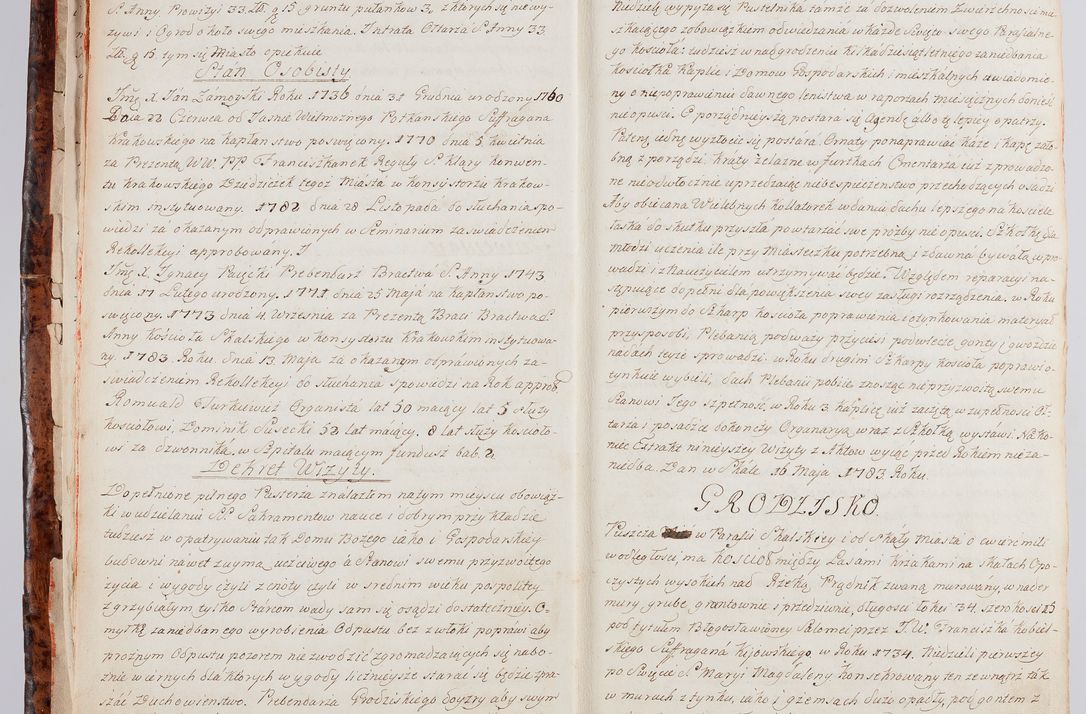 S. Anny. Prowizyi 33. Zł. g. 15 gruntu putankow 3, z ktorych się niewy-
zywi i Ogrod koło swego mieszkania. Intrata Ołtarza S. Anny 33
Zł. g. 15. tym się Miasto opiekuie
Stan Osobisty
Jmę X. Jan Zámoyski Roku 1736 dnia 31 Grudnia urodzony 1760
Dnia 22 Czerwca od Jaśnie Wielmożnego Potkańskiego Suffragana
Krakowskiego na kapłanstwo poswięcony. 1770 dnia 5 kwietnia
za Prezentą WW. PP. Franciszkanek Reguły S. Klary konwen-
tu krakowskiego Dziedziczek tegoż Miásta w konsystorzu krakow-
skim instytuowany. 1782 dnia 28 Listopadá do słuchania spo-
wiedzi za okazanym odprawionych w Seminarium zaświadczeniem
Rekollekcyi approbowány.
Jmę X. Ignacy Pajęcki Prebendarz Bractwá S. Anny 1743
dniá 17 Lutego urodzony. 1771 dnia 25 Majá na kapłanstwo po-
swięcony. 1773 dnia 4. Wrzesnia za Prezentą Braci Bractwa S.
Anny Kościoła Skalskiego w konsystorzu Krakowskim instytuowa-
ny. 1783. Roku. dnia 13. Maja za okazanym odprawionych za-
świadczeniem Rekollekcyi do słuchania Spowiedzi na Rok approb.
Romuald Turkiewicz Organistá lat 50 maiący lat 5 służy
kościołowi, Dominik Susecki 52 lat maiący. 8 lat służy kościoło-
wi za dzwonniká, w Szpitalu maiącym fundusz bab. 2.
Dekret Wizyty.
Dopełnione pilnego Pásterza ználazłem na tym mieyscu obowiąz-
ki w udzielaniu SS. Sakramentow nauce i dobrym przykładzie
tudziesz w opatrywaniu tak Domu Bożego iako i Gospodarskiey
budowni náwet zuymą uczciwego á Stanowi swemu przyzwoitego
życia i wygody czyli z cnoty czyli w srednim wieku pospolitey
z grzybiałym tylko Starcom wady sam się osądzi dostateczniey. O-
myłkę zaniedbanego wyrobienia Odpustu bez zwłoki popráwi aby
proznym Odpustu pozorem niezwodzić zgromadzaiących się nabo-
żnie wiernych dla ktorych wygody licznieysze starać się będzie zpra-
szać Duchowieństwo. Prebendarza Grodziskiego doyzry aby swym
Niedzielę wypyza się Pustelnika tamże za dozwoleniem Zwierzchności mi-
szkaiącego zobowiązkiem odwiedzania w każde Święto swego Parafialne-
go kościoła: tudziesz w nadgrodzenie kilkadziesiąt letniego zaniedbania
kościołka Kaplic i Domow Gospodarskich i mieszkalnych uwiadomio-
ny o niepoprawieniu dawnego lenistwa w raportach miesięcznych doniesć
nieopuści. O porządnieyszą postara się Agendę álbo tę lepiey opatrzy.
Patenę iednę wyzłocić się postará. Ornaty ponaprawiać każe i kapę zało-
bną z porządzi. kraty żelazne w furtkach Cmentarza iuż zprowadzo-
ne nieodwłocznie uprzedzaiąc niebespieczenstwo przechodzących osadzi
Aby obiecana Wielebnych kollatorek w daniu dachu lepszego na kościele
łaska do skutku przyszła powtarzać swe prozby nieopuści. Szkołkę dla
młodzi uczenia ile przy Miasteczku potrzebną i zdawna bywałą wpro-
wadzi i z Nauczycielem utrzymywać będzie. Względem reparacyi na-
stępuiące dopełni dla powiększenia swey zasługi rozrządzenia. w Roku
pierwszym do Szkarp kościoła poprawienia i otynkowania materyał
przysposobi, Plebanią podważy przyciesi podwlecze gonty i gwozdzie
na dach teyże sprowadzi. w Roku drugim Szkarpy kościoła poprawi o-
tynkuie wybieli, dach Plebanii pobiie znosząc nieprzyzwoitą swemu
Stanowi Jego szpetność, w Roku 3. kaplicę iuż zaczętą w zupełności Oł-
tarza i posadzce dokończy Organaryą wraz z Szkołką wystáwi. Na ko-
niec Extrakt ninieyszey Wizyty z Aktow wyiąc przed Rokiem nieza-
niedba Dan w Skale. 16 Maja 1783. Roku.
GRODZISKO.
Puszcza w Parafii Skalskiey i od Skáły Miastá o cwierć mili
w odległości, ma kościoł między Lasami krzakami na Skałach Opo-
czystych wysokich nad Rzeką Prądnik zwaną murowány, w nader
mury, grube, gruntownie i przedziwnie, długości łokci 34. szerokości 15
pod tytułem Błogosłáwioney Salomei przez J. W. Franciszka kobiel-
skiego Suffragana Kijowskiego, w Roku 1734. Niedzieli pierwszey
po Swięcie S. Maryi Magdaleny konsekrowany ten ze wnątrz tak
w murach z tynku, iako i gzemsach dużo opadły, pod gontem z